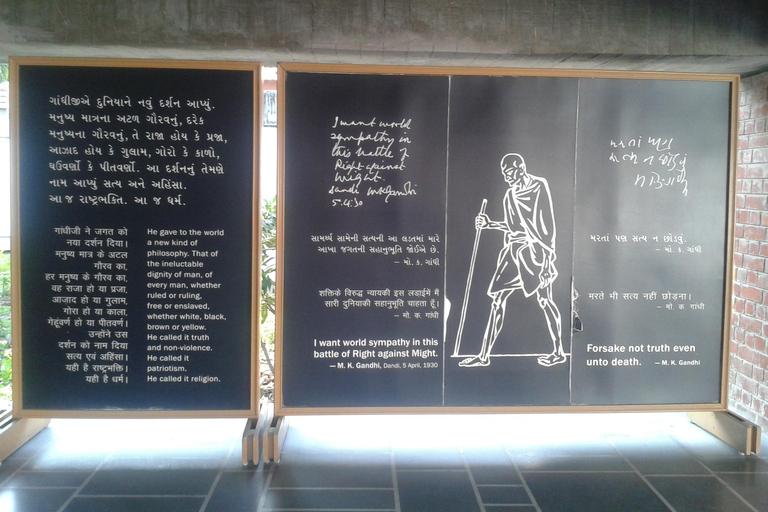 ગાંધીજીએ દુનિયાને નવું દર્શન આપ્યું.
મનુષ્ય માત્રના અટળ ગૌરવનું, દરેક
મનુષ્યના ગૌરવનું, તે રાજા હોય કે પ્રજા,
આઝાદ હોય કે ગુલામ, ગોરો કે કાળો,
ઘઉંવર્ણો કે પીતવર્ણો. આ દર્શનનું તેમણે
નામ આપ્યું સત્ય અને અહિંસા.
આ જ રાષ્ટ્રભક્તિ. આ જ ધર્મ.
गांधीजी ने जगत को
नया दर्शन दिया।
मनुष्य मात्र के अटल
गौरव का,
हर मनुष्य के गौरव का,
वह राजा हो या प्रजा,
आजाद हो या गुलाम,
गोरा हो या काला,
गेहूंवर्ण हो या पीतवर्ण।
उन्होंने उस
दर्शन को नाम दिया
सत्य एवं अहिंसा।
यही है राष्ट्रभक्ति।
यही है धर्म।
He gave to the world
a new kind of
philosophy. That of
the ineluctable
dignity of man, of
every man, whether
ruled or ruling,
free or enslaved,
whether white, black,
brown or yellow.
He called it truth
and non-violence.
He called it
patriotism.
He called it religion.
I want world
sympathy in
this battle of
Right against
might.
Dandi MKGandhi
5.4.30
સામર્થ્ય સામેની સત્યની આ લડતમાં મારે
આખા જગતની સહાનુભૂતિ જોઈએ છે.
– મો. ક. ગાંધી
शक्तिके विरुद्ध न्यायकी इस लडाईमें मैं
सारी दुनियाकी सहानुभूति चाहता हूँ।
– मो. क. गांधी
I want world sympathy in this
battle of Right against Might.
– M. K. Gandhi, Dandi, 5 April, 1930
મરતાં પણ
સત્ય ન છોડવું
મરતાં પણ સત્ય ન છોડવું.
– મો. ક. ગાંધી
मरते भी सत्य नहीं छोड़ना।
– मो. क. गांधी
Forsake not truth even
unto death. – M. K. Gandhi